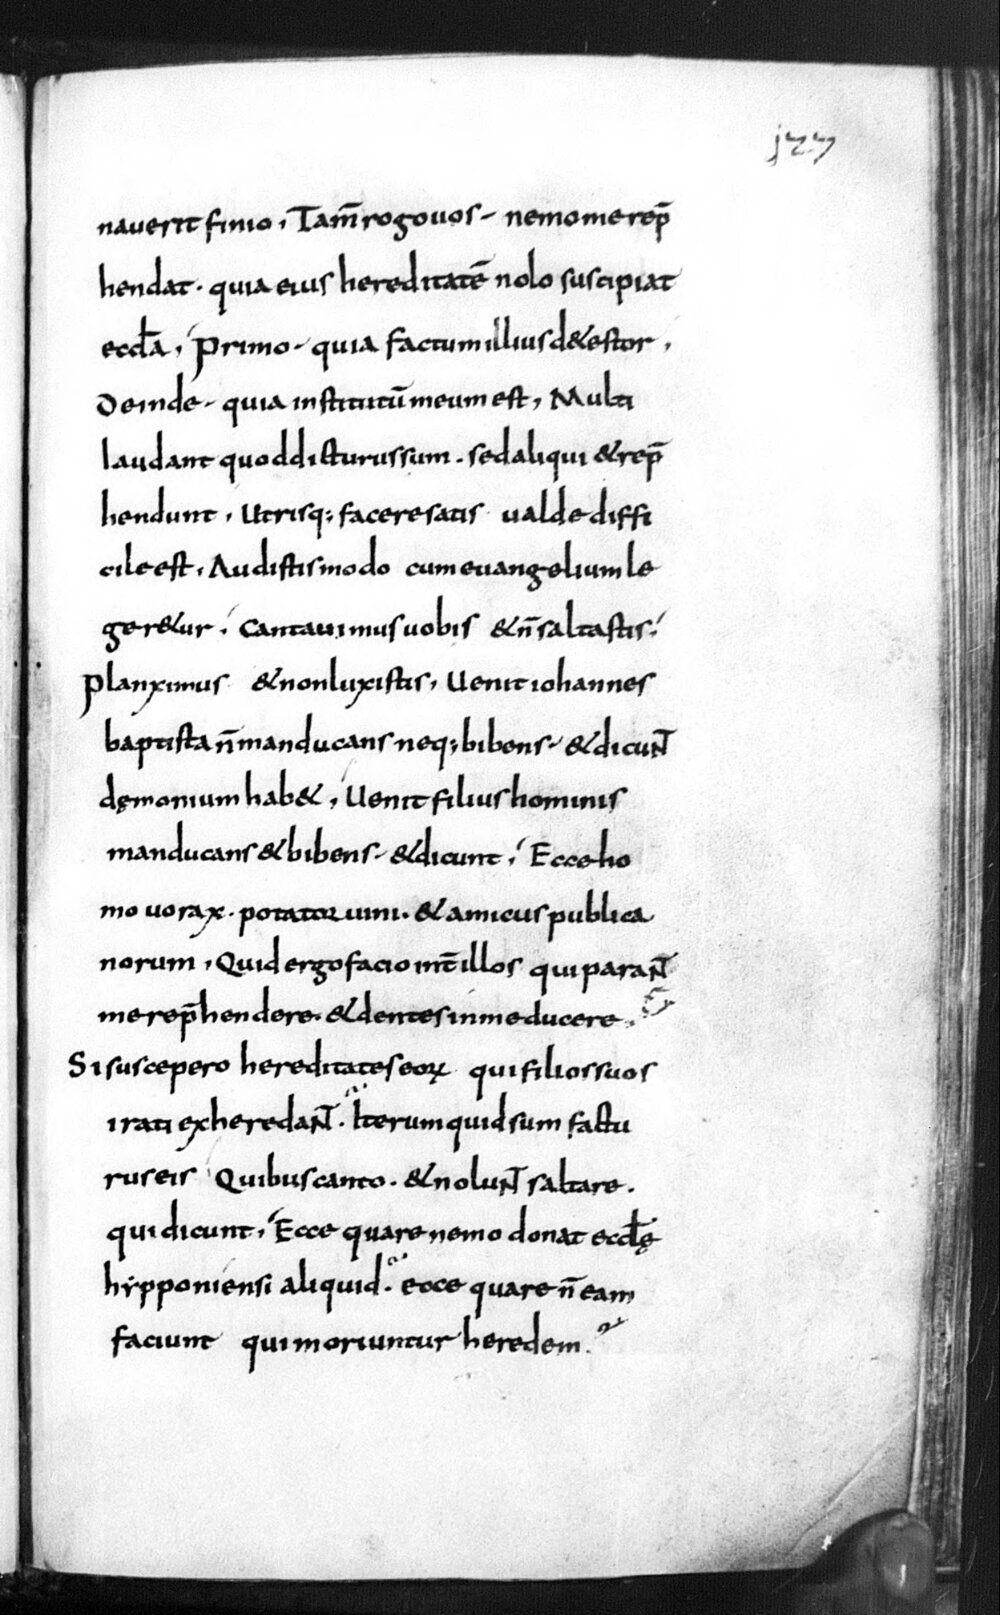 177
nauerit finio, Tam̄ rogo uos - nemo me rep̄
hendat · quia eius hereditatē nolo suscipiat
eccl̄a, Primo - quia factum illius d&estor,
Deinde - quia institutū meum est, Multi
laudant quod dicturus sum · sed aliqui & rep̄
hendunt, Utrisq; facere satis ualde diffi
cile est, Audistis modo cum euangelium le
ger&ur, Cantauimus uobis & n̄ saltastis,
Planximus & non luxistis, Uenit iohannes
baptista n̄ manducans neq; bibens - & dicuN̄T
dęmonium hab&, Uenit filius hominis
manducans & bibens - & dicunt, Ecce ho
mo uorax · potator uini · & amicus publica
norum, Quid ergo facio int̄ illos qui paraN̄T
me rep̄hendere · & dentes in me ducere ·
Si suscepero hereditates eoꝝ qui filios suos
irati exheredaN̄T · Iterum quid sum factu
rus eis Quibus canto · & noluN̄T saltare ·
qui dicunt, Ecce quare nemo donat eccl̄ę
hypponiensi aliquid · ecce quare n̄ eam
faciunt qui moriuntur heredem ·